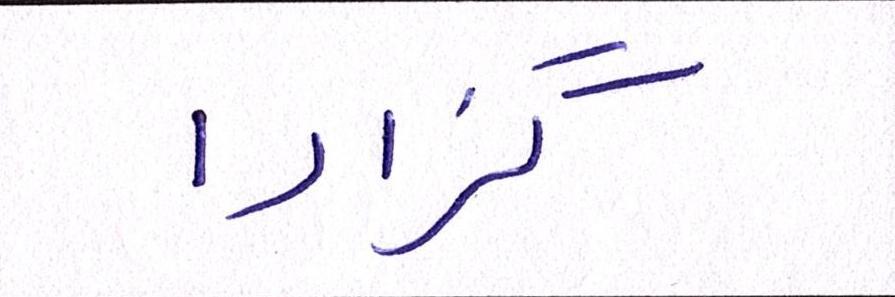 گزارا